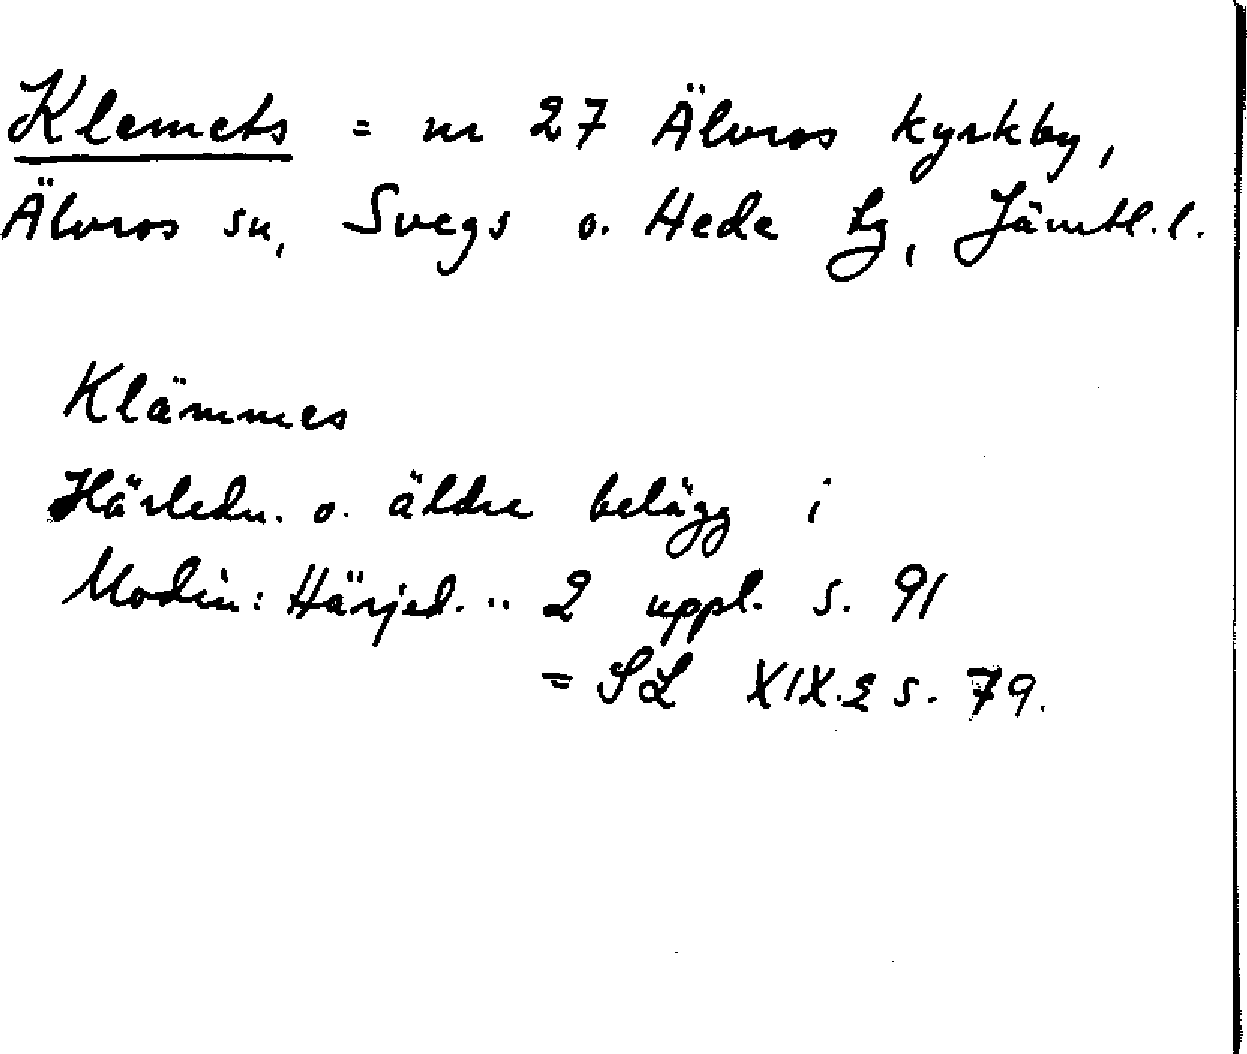 Klemets = nr 27 Älvros kyrkby,
Älvros sn, Svegs o. Hede tg, Jämtl. l.
Klämmes
Härledn. o. äldre belägg i
Modin: Härjed. .. 2 uppl. s. 91
= SL XIX.2 s. 79.